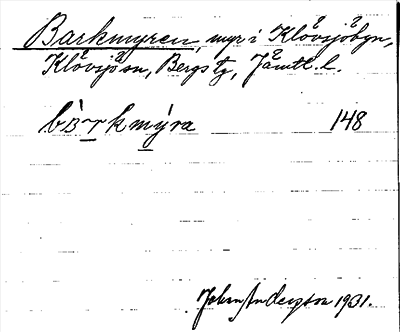 Barkmyren, myr i Klövsjöbyn,
Klövsjö sn, Bergs tg, Jämtl. l.
bàrkmýra 148
Johan Anderzson 1931.